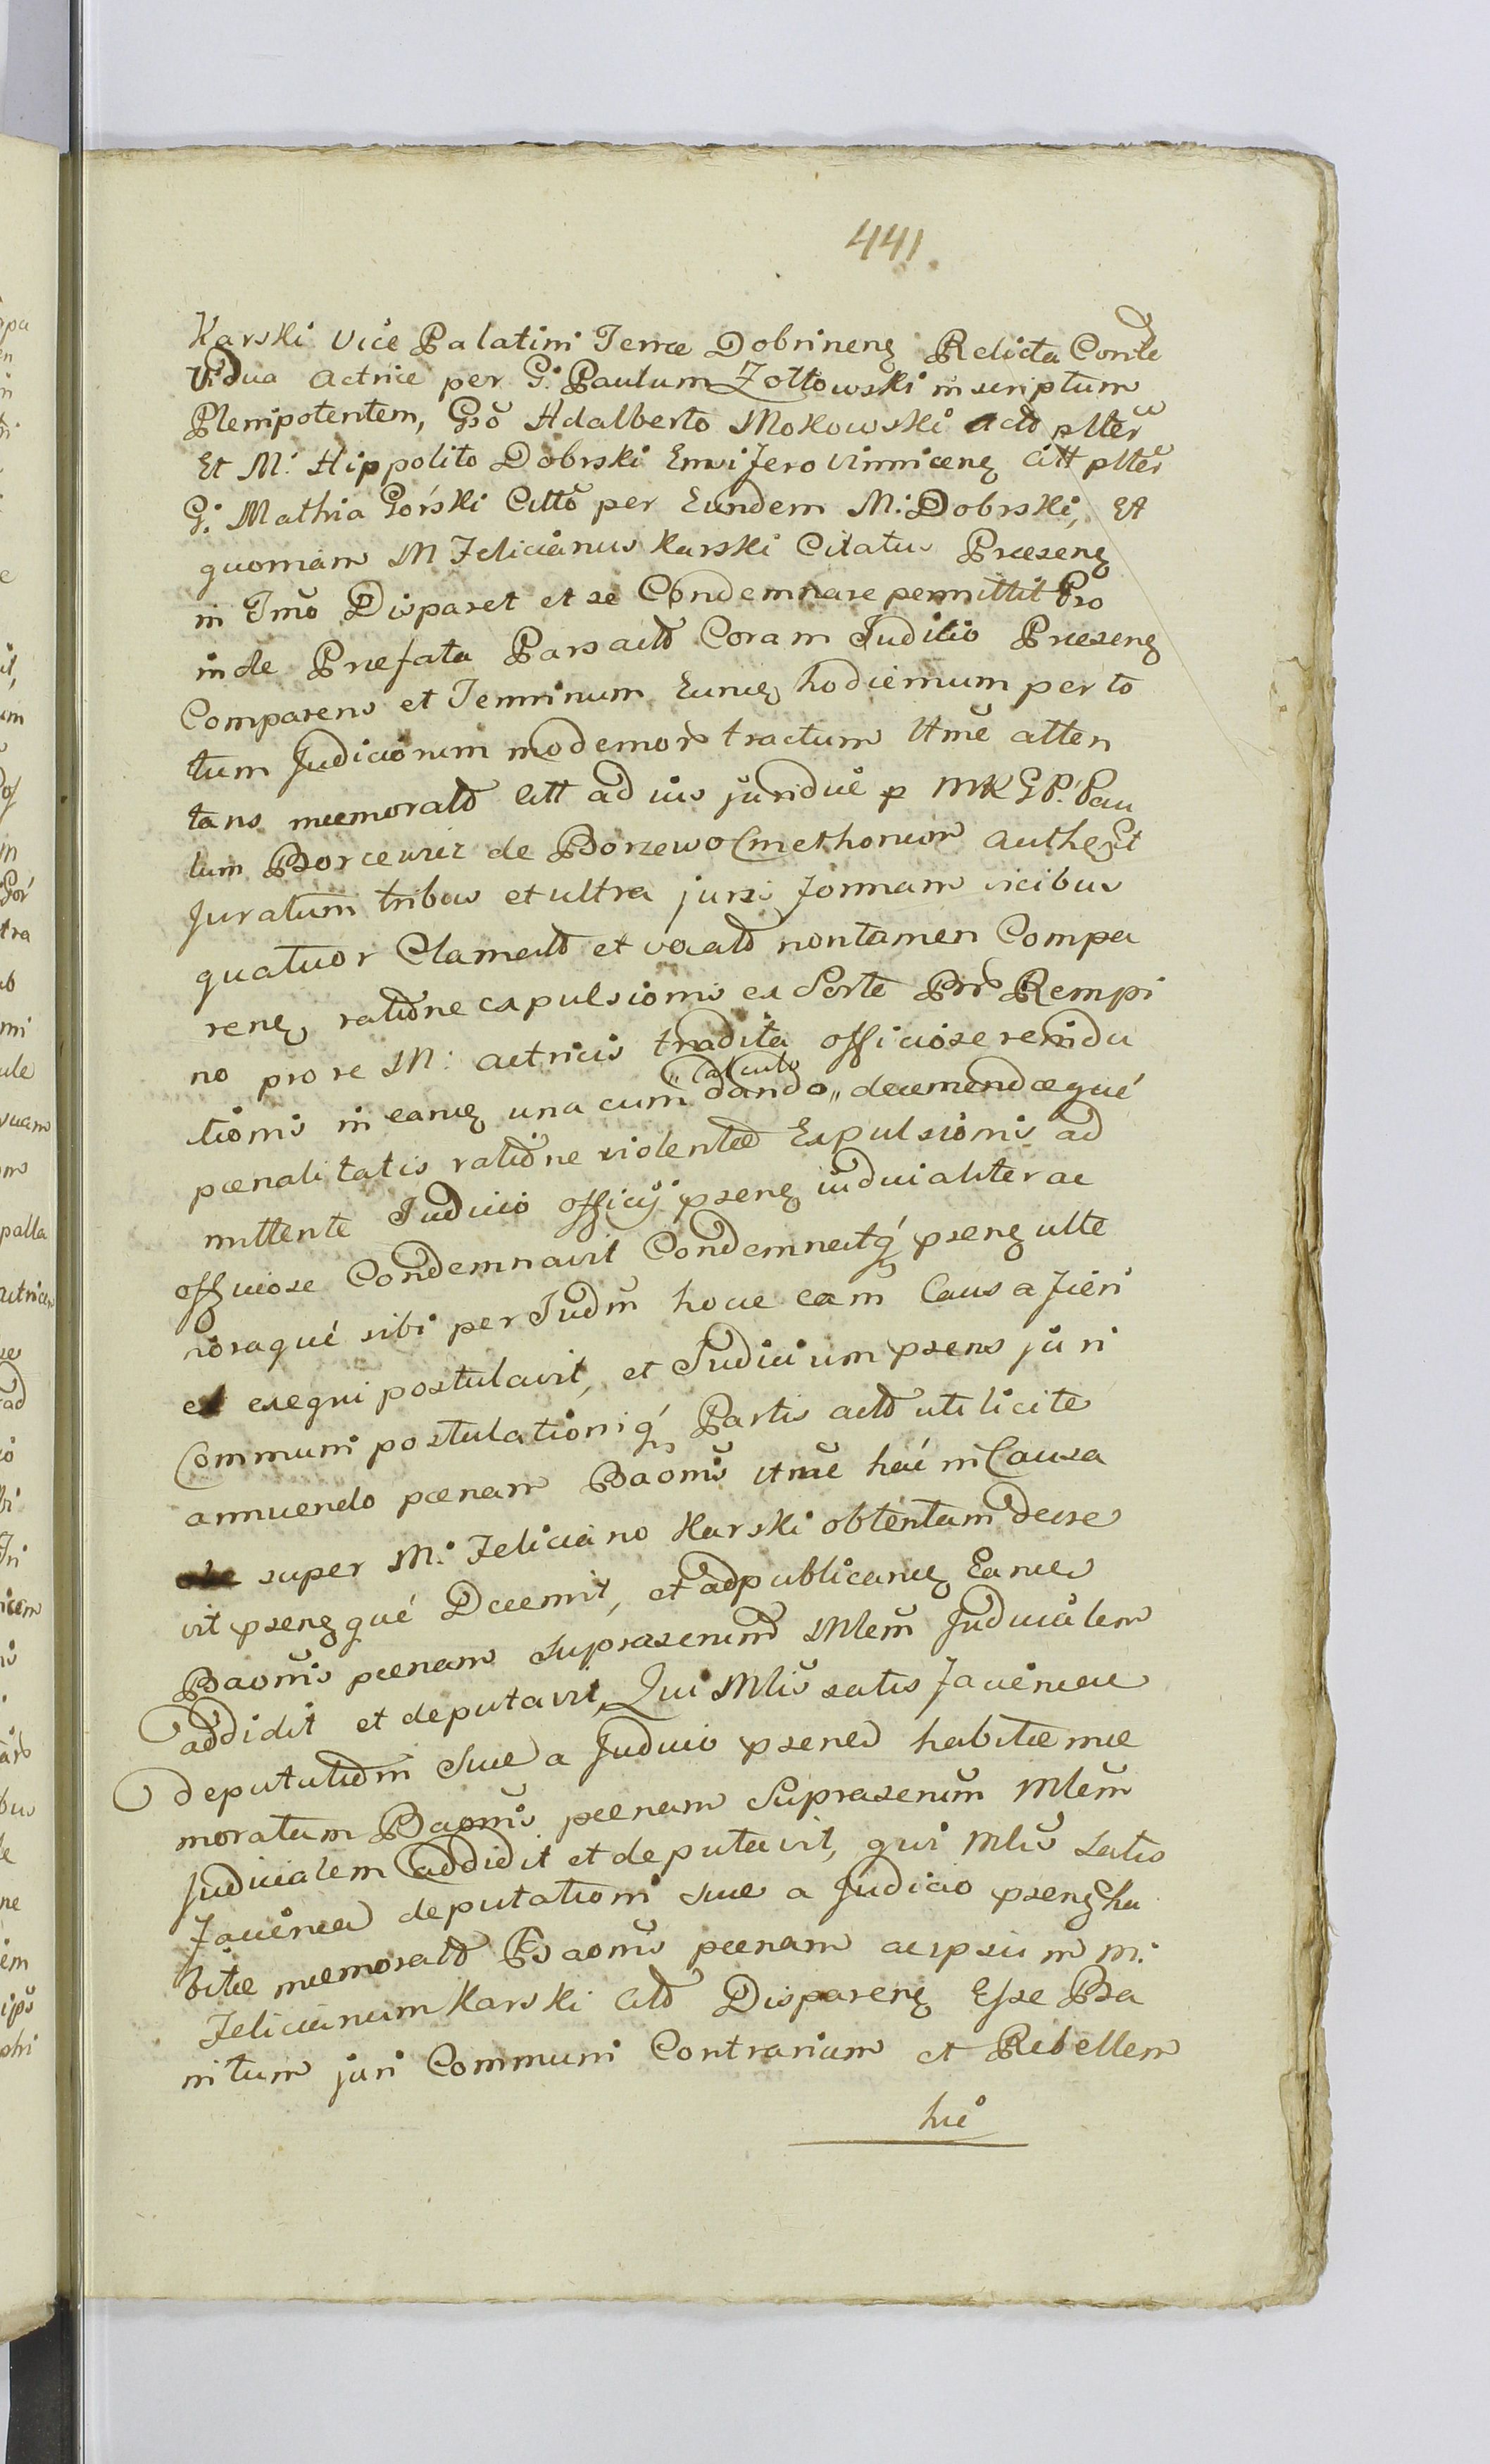 441
Karski Vice Palatini Terræ Dobrinenq Relicta Conte
Vidua Actrice per G: Paulum Zoltowski inscriptum
Plenipotentem, Gso Adalberto Mokowski Acto plter
Et M: Hippolito Dobrski Ensifero Vinnicenq Citt plter
G: Mathia Górski Citto per Eundem M: Dobrski, Et
quoniam M Felicianus Karski Citatus Præsenq
in Tmo Disparet et se Condemnare permittit Pro
inde Præfata Pars acto Coram Juditio Præsenq
Comparens et Terminum Eunq hodiernum per to
tum Judiciorum modernor tractum Ame atten
tans memorato Citt ad ius juridice p MKGP: Pau
lum Borcewicz de Borzewo Cmethonum Authent
Juratum tribus et ultra juris formam vicibus
quatuor Clamato et vocato non tamen Compa
renq ratione expulsionis ex Sorte Prd Rempi
no pro re M: actricis tradita officiose reindu
tionis in eanq una cum "Calculo dando" decernendæqué
pœnalitatis ratione violentæ Expulsionis ad
mittente Judicio officij psenq iudicialiter ac
officiose Condemnavit Condemnatq psenq ulte
rioraqué sibi per Judm hocce eam Causa fieri
et exequi postulavit, et Judicium psens juri
Communi postulationiq Partis acto uti licite
annuendo pœnam Baonis Ame hac in Causa
super M: Feliciano Karski obtentam decre
vit psenqqué Decernit, et ad publicanq Eanq
Baonis pœnam suprascrium Mlem Judicialem
addidit et deputavit, Qui Mlis satis faciendo
deputationi suæ a Judicio psenq habitæ me
moratam Baonis pœnam Suprascrium Mlem
Judicialem addidit et deputavit, qui Mlis satis
faciendo deputationi suæ a Judicio psenq ha
bitæ memorato Baonis pœnam ac ipsum M:
Felicianum Karski Cito Disparenq Esse Ba
nitum juri Communi Contrarium et Rebellem
huc